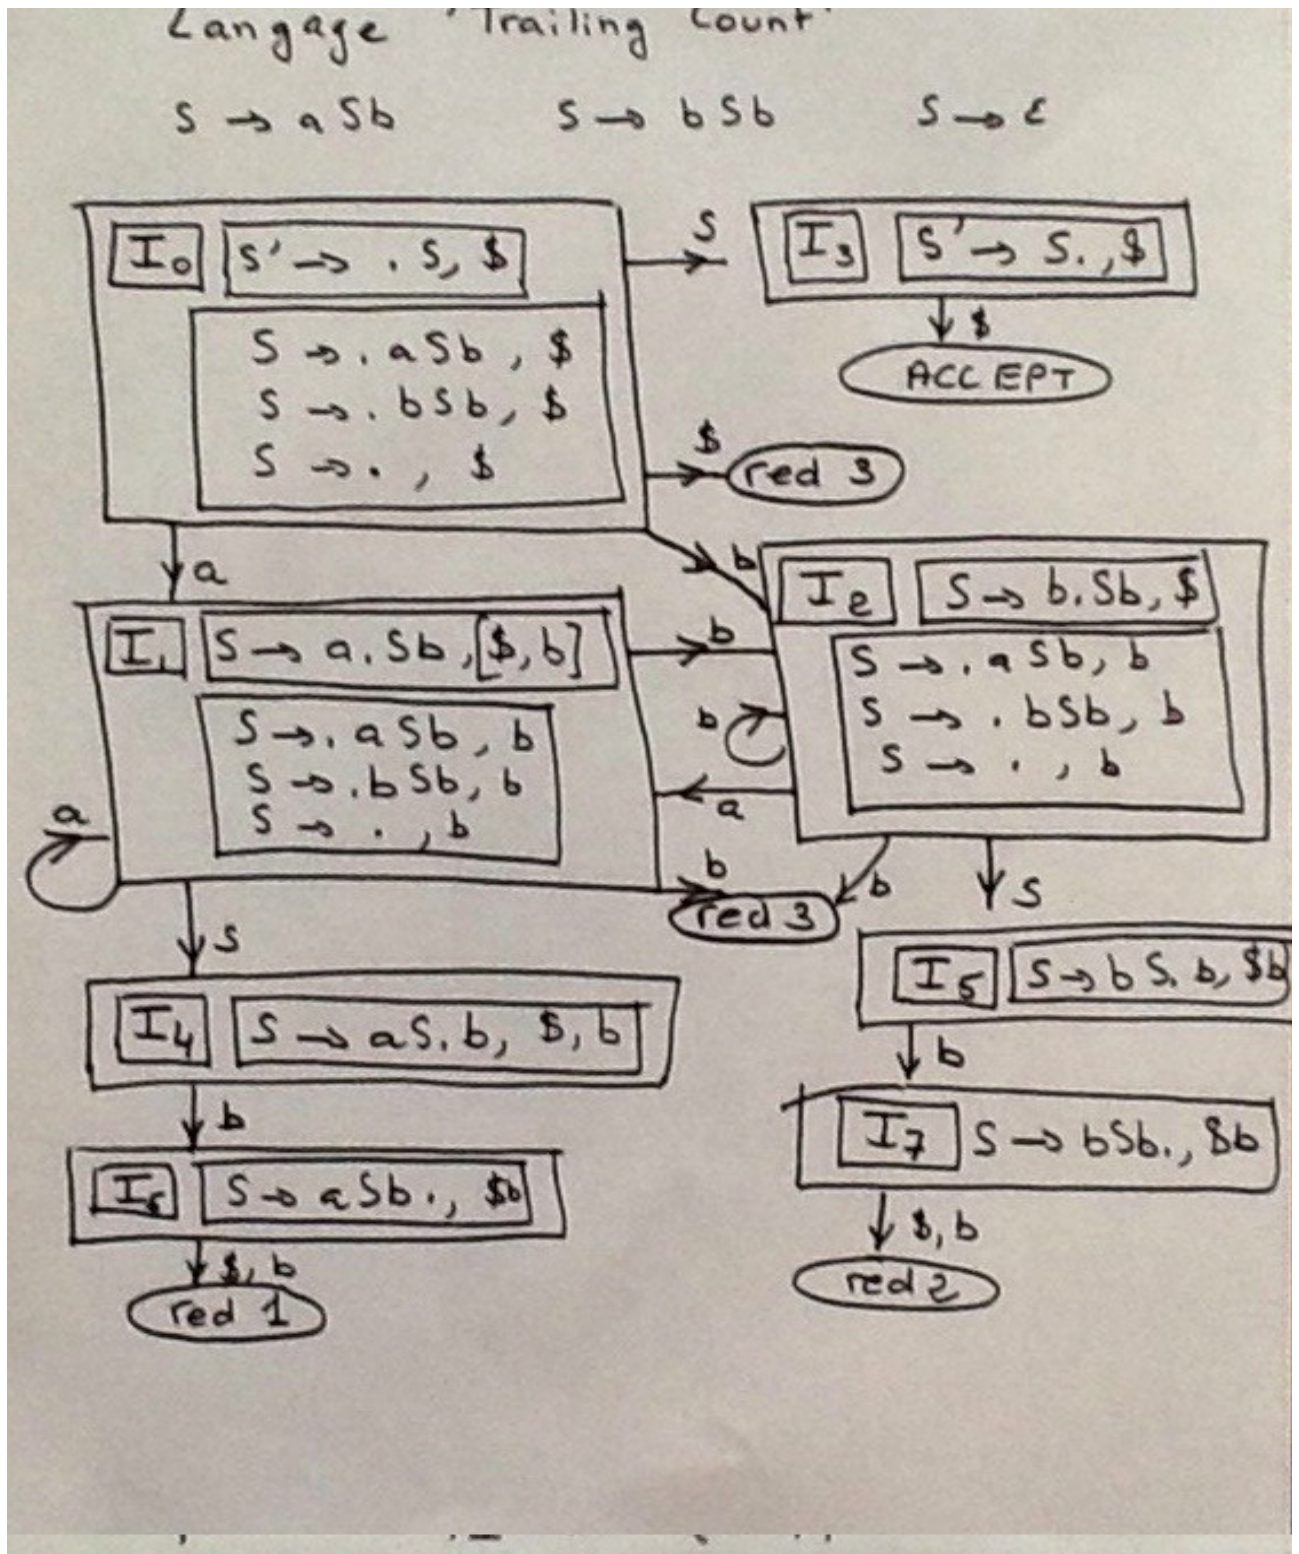 Langage 'Trailing Count'
S → aSb S → bSb S → ε
I0 S' → . S, $
S → . aSb, $
S → . bSb, $
S → . , $
S
I3 S' → S. , $
$
ACCEPT
$
red 3
a
b
I1 S → a. Sb, [$, b]
S → . aSb, b
S → . bSb, b
S → . , b
a
b
b
a
I2 S → b. Sb, $
S → . aSb, b
S → . bSb, b
S → . , b
b
red 3
b
S
S
I4 S → aS. b, $, b
b
S → aSb. , $b
$, b
red 1
I5 S → bS. b, $b
b
I7 S → bSb. , $b
$, b
red 2